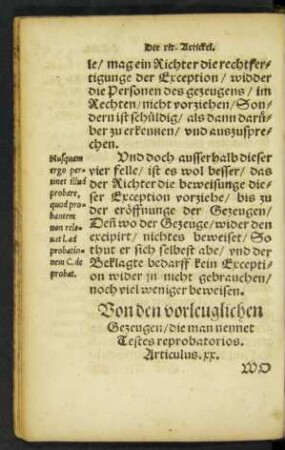 Der xix. Artickel.
le/ mag ein Richter die rechtfer-
tigunge der Exception/ widder
die Personen des gezeugens/ im
Rechten/ nicht vorziehen/ Son-
dern ist schüldig/ als dann darü-
ber zu erkennen/ vnd auszuspre-
chen.
Vnd doch ausserhalb dieser
vier felle/ ist es wol besser/ das
der Richter die beweisunge die-
ser Exception vorziehe/ bis zu
der eröffnunge der Gezeugen/
Deñ wo der Gezeuge/ wider den
excipirt/ nichtes beweiset/ So
thut er sich selbest abe/ vnd der
Beklagte bedarff kein Excepti-
on wider jn nicht gebrauchen/
noch viel weniger beweisen.
Nusquam
ergo per-
tinet illud
probare,
quod pro-
bantem
non rele-
uat l. ad
probatio-
nem C. de
probat.
Von den vorleuglichen
Gezeugen/ die man nennet
Testes reprobatorios.
Articulus. xx.
WO